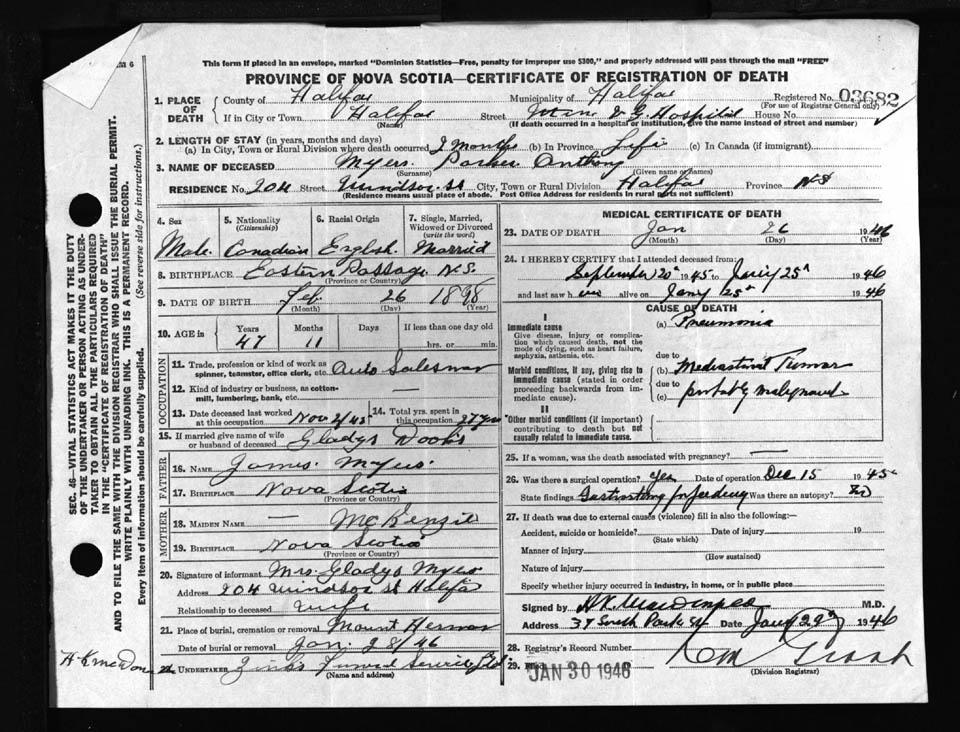 This form if placed in an envelope, marked "Dominion Statistics—Free, penalty for improper use $300," and properly addressed will pass through the mail "FREE"
PROVINCE OF NOVA SCOTIA—CERTIFICATE OF REGISTRATION OF DEATH
1. PLACE OF DEATH
County of Halifax Municipality of Halifax Registered No. 03682
(For use of Registrar General only)
If in City or Town Halifax Street & G. Hospital House No.
(Name) (If death occurred in a hospital or institution, give the name instead of street and number)
2. LENGTH OF STAY (in years, months and days)
(a) In City, Town or Rural Division where death occurred months (b) In Province Life (c) In Canada (if immigrant)
3. NAME OF DECEASED Myers Parker Anthony
(Surname) (Given name or names)
RESIDENCE No. 204 Street Windsor St City, Town or Rural Division Halifax Province N.S
(Residence means usual place of abode. Post Office Address for residents in rural parts not sufficient)
4. Sex 5. Nationality 6. Racial Origin 7. Single, Married, Widowed or Divorced
(Citizenship) (write the word)
Male Canadian English Married
8. BIRTHPLACE Eastern Passage N.S.
(Province or Country)
9. DATE OF BIRTH Feb 26 1898
(Month) (Day) (Year)
10. AGE in Years Months Days If less than one day old
47 11 hrs. or min.
OCCUPATION
11. Trade, profession or kind of work as spinner, teamster, office clerk, etc. Auto Salesman
12. Kind of industry or business, as cotton-mill, lumbering, bank, etc. —
13. Date deceased last worked at this occupation Nov 2/45 14. Total yrs. spent in this occupation
15. If married give name of wife or husband of deceased Gladys
FATHER
16. NAME James Myers
17. BIRTHPLACE Nova Scotia
(Province or Country)
MOTHER
18. MAIDEN NAME — McKenzie
19. BIRTHPLACE Nova Scotia
(Province or Country)
20. Signature of informant Mrs. Gladys Myers
Address 204 Windsor St Halifax
Relationship to deceased wife
21. Place of burial, cremation or removal Mount Hermon
Date of burial or removal Jan. 28/46
22. UNDERTAKER Funeral Service Ltd.
(Name and address)
MEDICAL CERTIFICATE OF DEATH
23. DATE OF DEATH Jan 26 1946
(Month) (Day) (Year)
24. I HEREBY CERTIFY that I attended deceased from:
September 20th 1945 to Jany 25th 1946
and last saw him alive on Jany 25th 1946
CAUSE OF DEATH
I
Immediate cause (a) Pneumonia
Give disease, injury or complication which caused death, not the mode of dying, such as heart failure, asphyxia, asthenia, etc.
due to
Morbid conditions, if any, giving rise to immediate cause (stated in order proceeding backwards from immediate cause) (b) Mediastinal Tumor
due to
(c) probably malignant
II
Other morbid conditions (if important) contributing to death but not causally related to immediate cause.
25. If a woman, was the death associated with pregnancy? —
26. Was there a surgical operation? Yes Date of operation Dec 15 1945
State findings Gastrostomy for feeding Was there an autopsy? No
27. If death was due to external causes (violence) fill in also the following:—
Accident, suicide or homicide? Date of injury 19
(State which)
Manner of injury
(How sustained)
Nature of injury
Specify whether injury occurred in industry, in home, or in public place
Signed by M.D.
Address 37 South Park St Date Jany 29th 1946
28. Registrar's Record Number
29. Filed JAN 30 1946
(Division Registrar)
SEC. 46—VITAL STATISTICS ACT MAKES IT THE DUTY
OF THE UNDERTAKER OR PERSON ACTING AS UNDER-
TAKER TO OBTAIN ALL THE PARTICULARS REQUIRED
IN THE "CERTIFICATE OF REGISTRATION OF DEATH"
AND TO FILE THE SAME WITH THE DIVISION REGISTRAR WHO SHALL ISSUE THE BURIAL PERMIT.
WRITE PLAINLY WITH UNFADING INK. THIS IS A PERMANENT RECORD.
Every item of information should be carefully supplied. (See reverse side for instructions.)